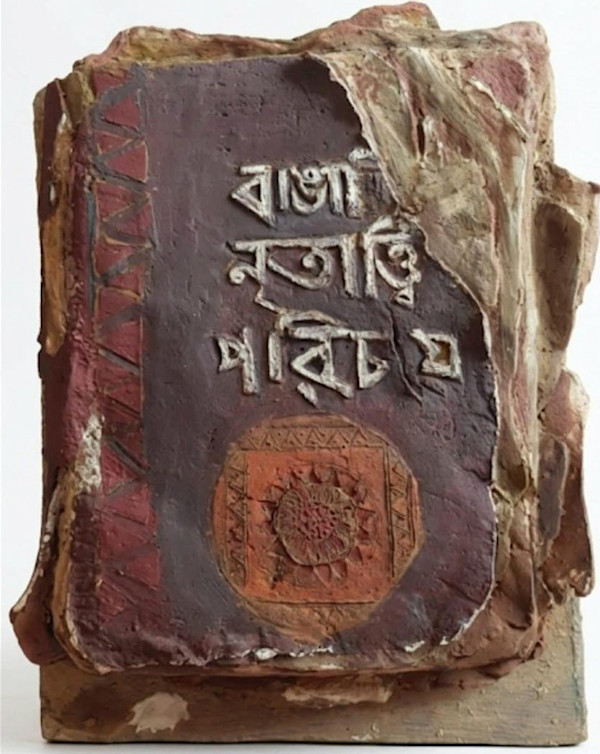 বাঙা
নৃতাত্ত্বি
পরিচয়